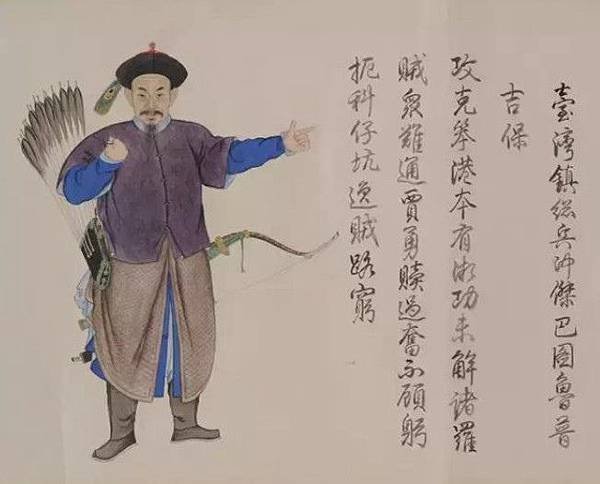 臺灣鎮総兵沖傑巴圖魯普
吉保
攻克笨港本有微功未解諸羅
賊衆難通賈勇贖過奮不顧躬
扼科仔坑逸賊路窮